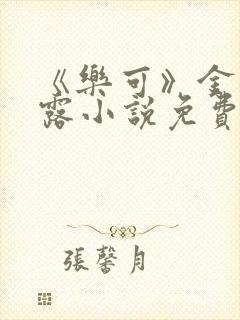 《樂可》金
露小說免費
張馨月